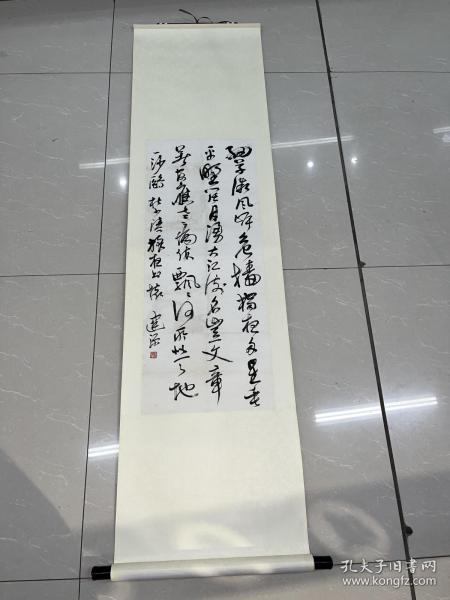 细草微风岸危樯独夜舟星垂
平野阔月涌大江流名岂文章
著官应老病休飘飘何所似天地
一沙鸥 杜甫诗旅夜书怀
孔夫子旧书网
www.kongfz.com